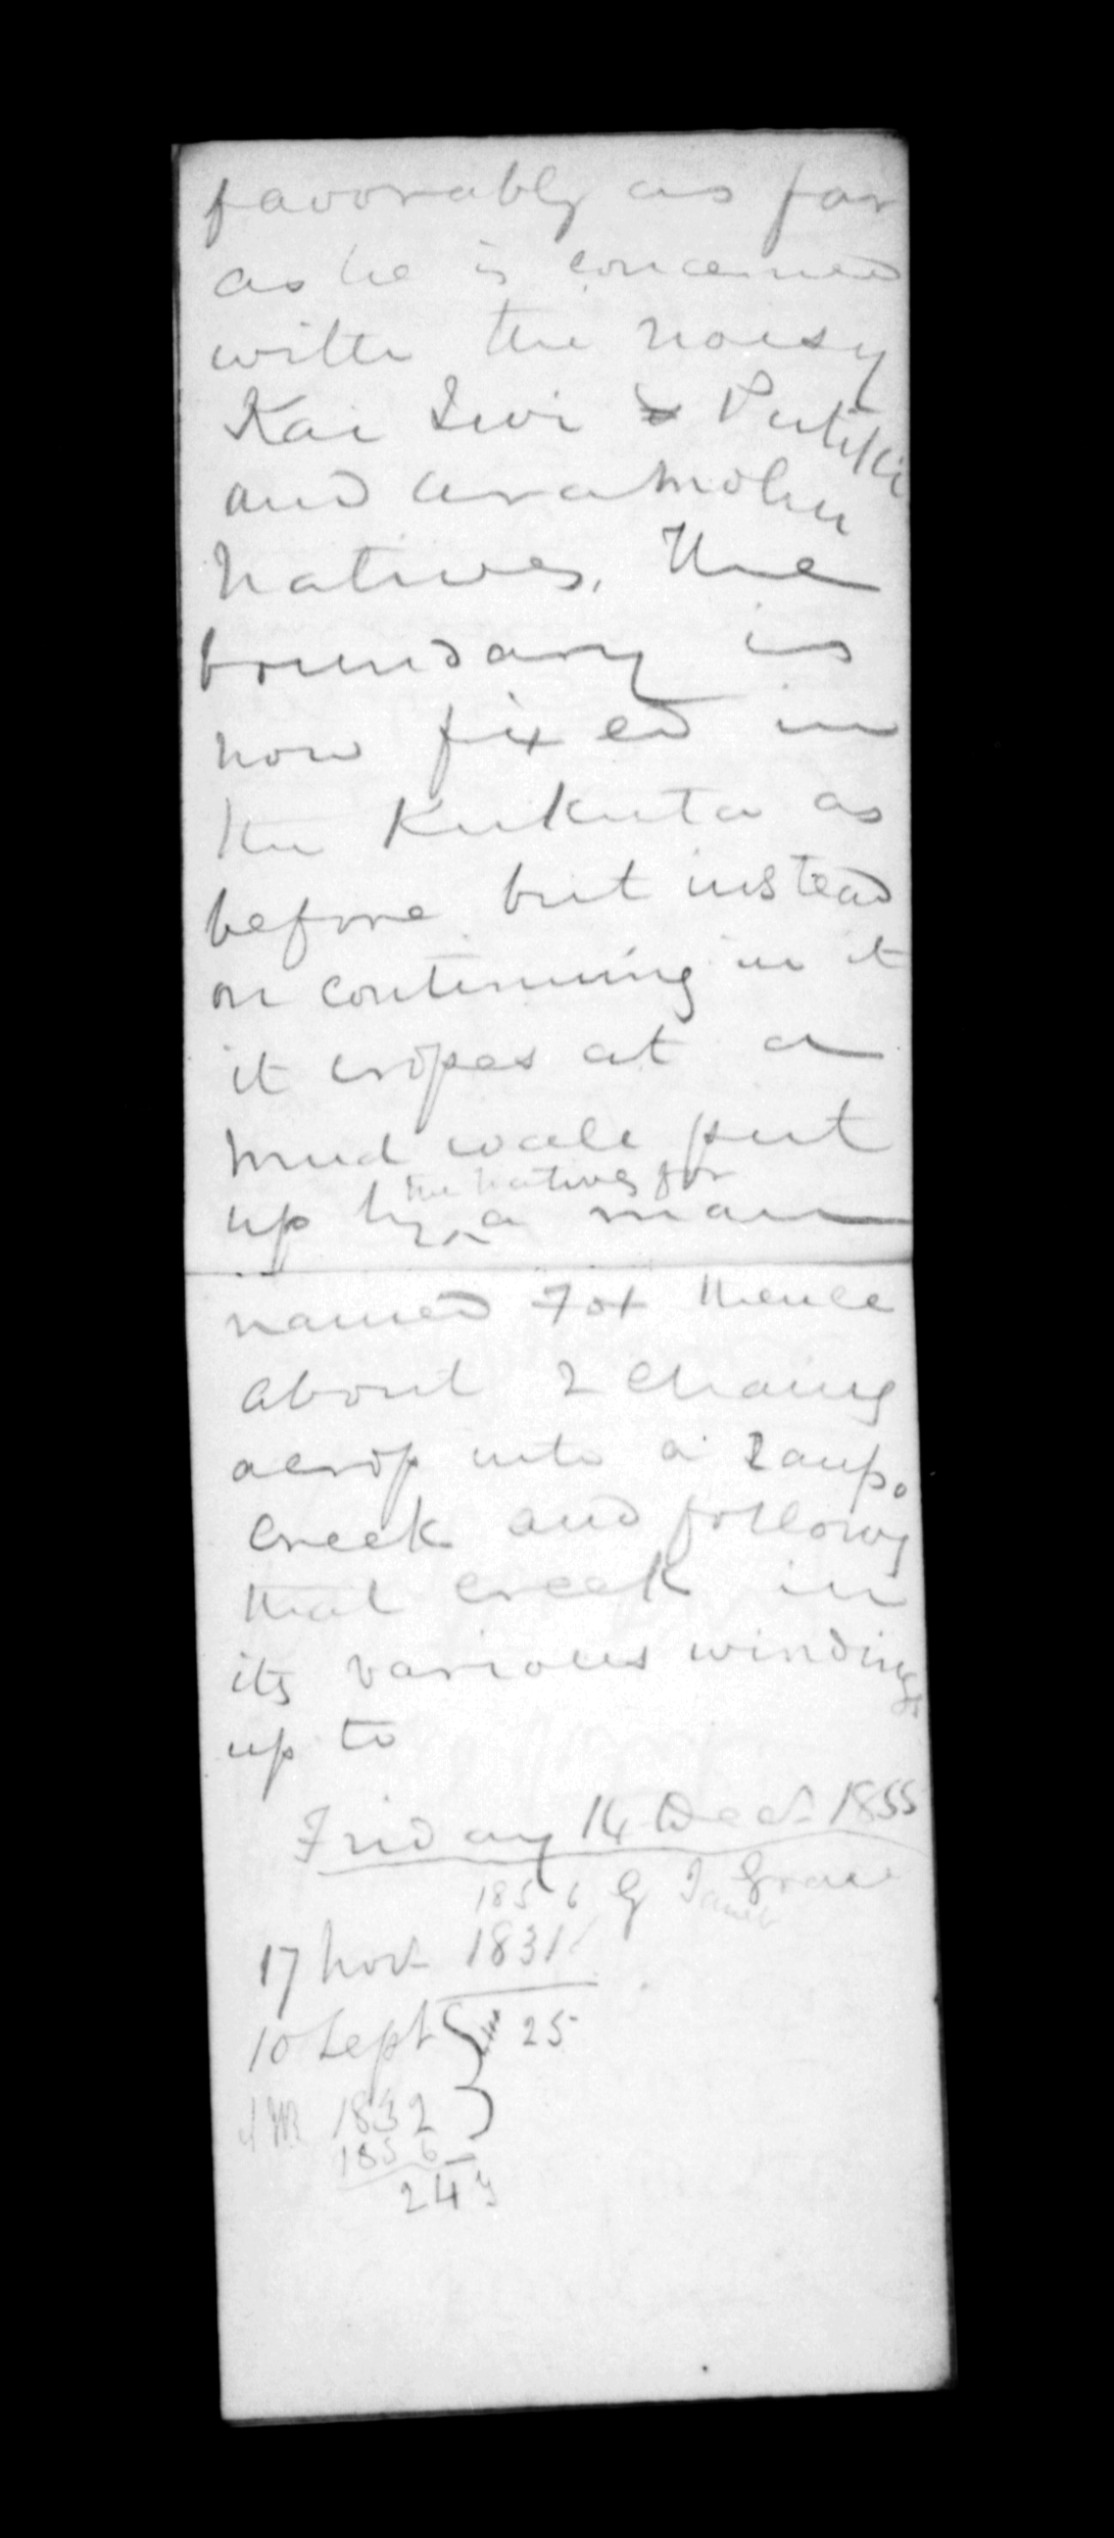 favorably as far
as he is concerned
with the noisy
Kai Iwi & Putiki
and aramohu
Natives. The
boundary is
now fixed in
the Kukuta as
before but instead
on continuing in it
it crosses at a
mud wall put
the natives for
up by ^ a man
named Fox thence
about 2 chains
across into a Raupo
creek and follows
that creek in
its various windings
up to
Friday 14 Decr 1855
1856 G Grace
17 Nov 1831
10 Sept } 25
1832 }
1856
24